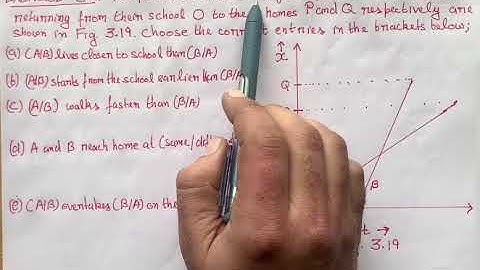 returning from their school O to their homes P and Q respectively are
shown in Fig 3.19. Choose the correct entries in the brackets below;
(a) (A/B) lives closer to school than (B/A)
(b) (A/B) starts from the school earlier than (B/A)
(c) (A/B) walks faster than (B/A)
(d) A and B reach home at (same/
(e) (A/B) overtakes (B/A) on the
x
Q
B
t →
3.19